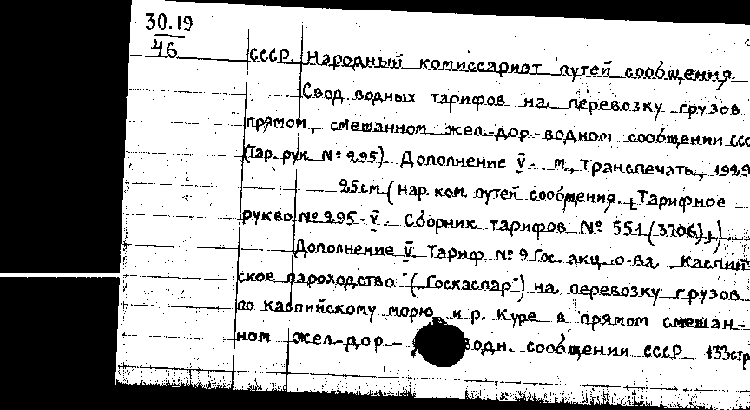 30.19
46
СССР. Народный комиссариат путей сообщения.
Свод водных тарифов на перевозку грузов
прямом, смешанном жел.-дор.-водном сообщении ССС
(Тар. рук. № 295). Дополнение V. м., Транспечать, 1929
25см (нар. ком. путей сообщения. Тарифное
рукво № 295-V. Сборник тарифов № 551 (3706).)
Дополнение V. Тариф. № 9 Гос. акц. о-ва "Каспий
ское пароходство" ("Госкаспар") на перевозку грузов
по каспийскому морю и р. Куре в прямом смешан-
ном жел-дор- водн. сообщении СССР 133стр